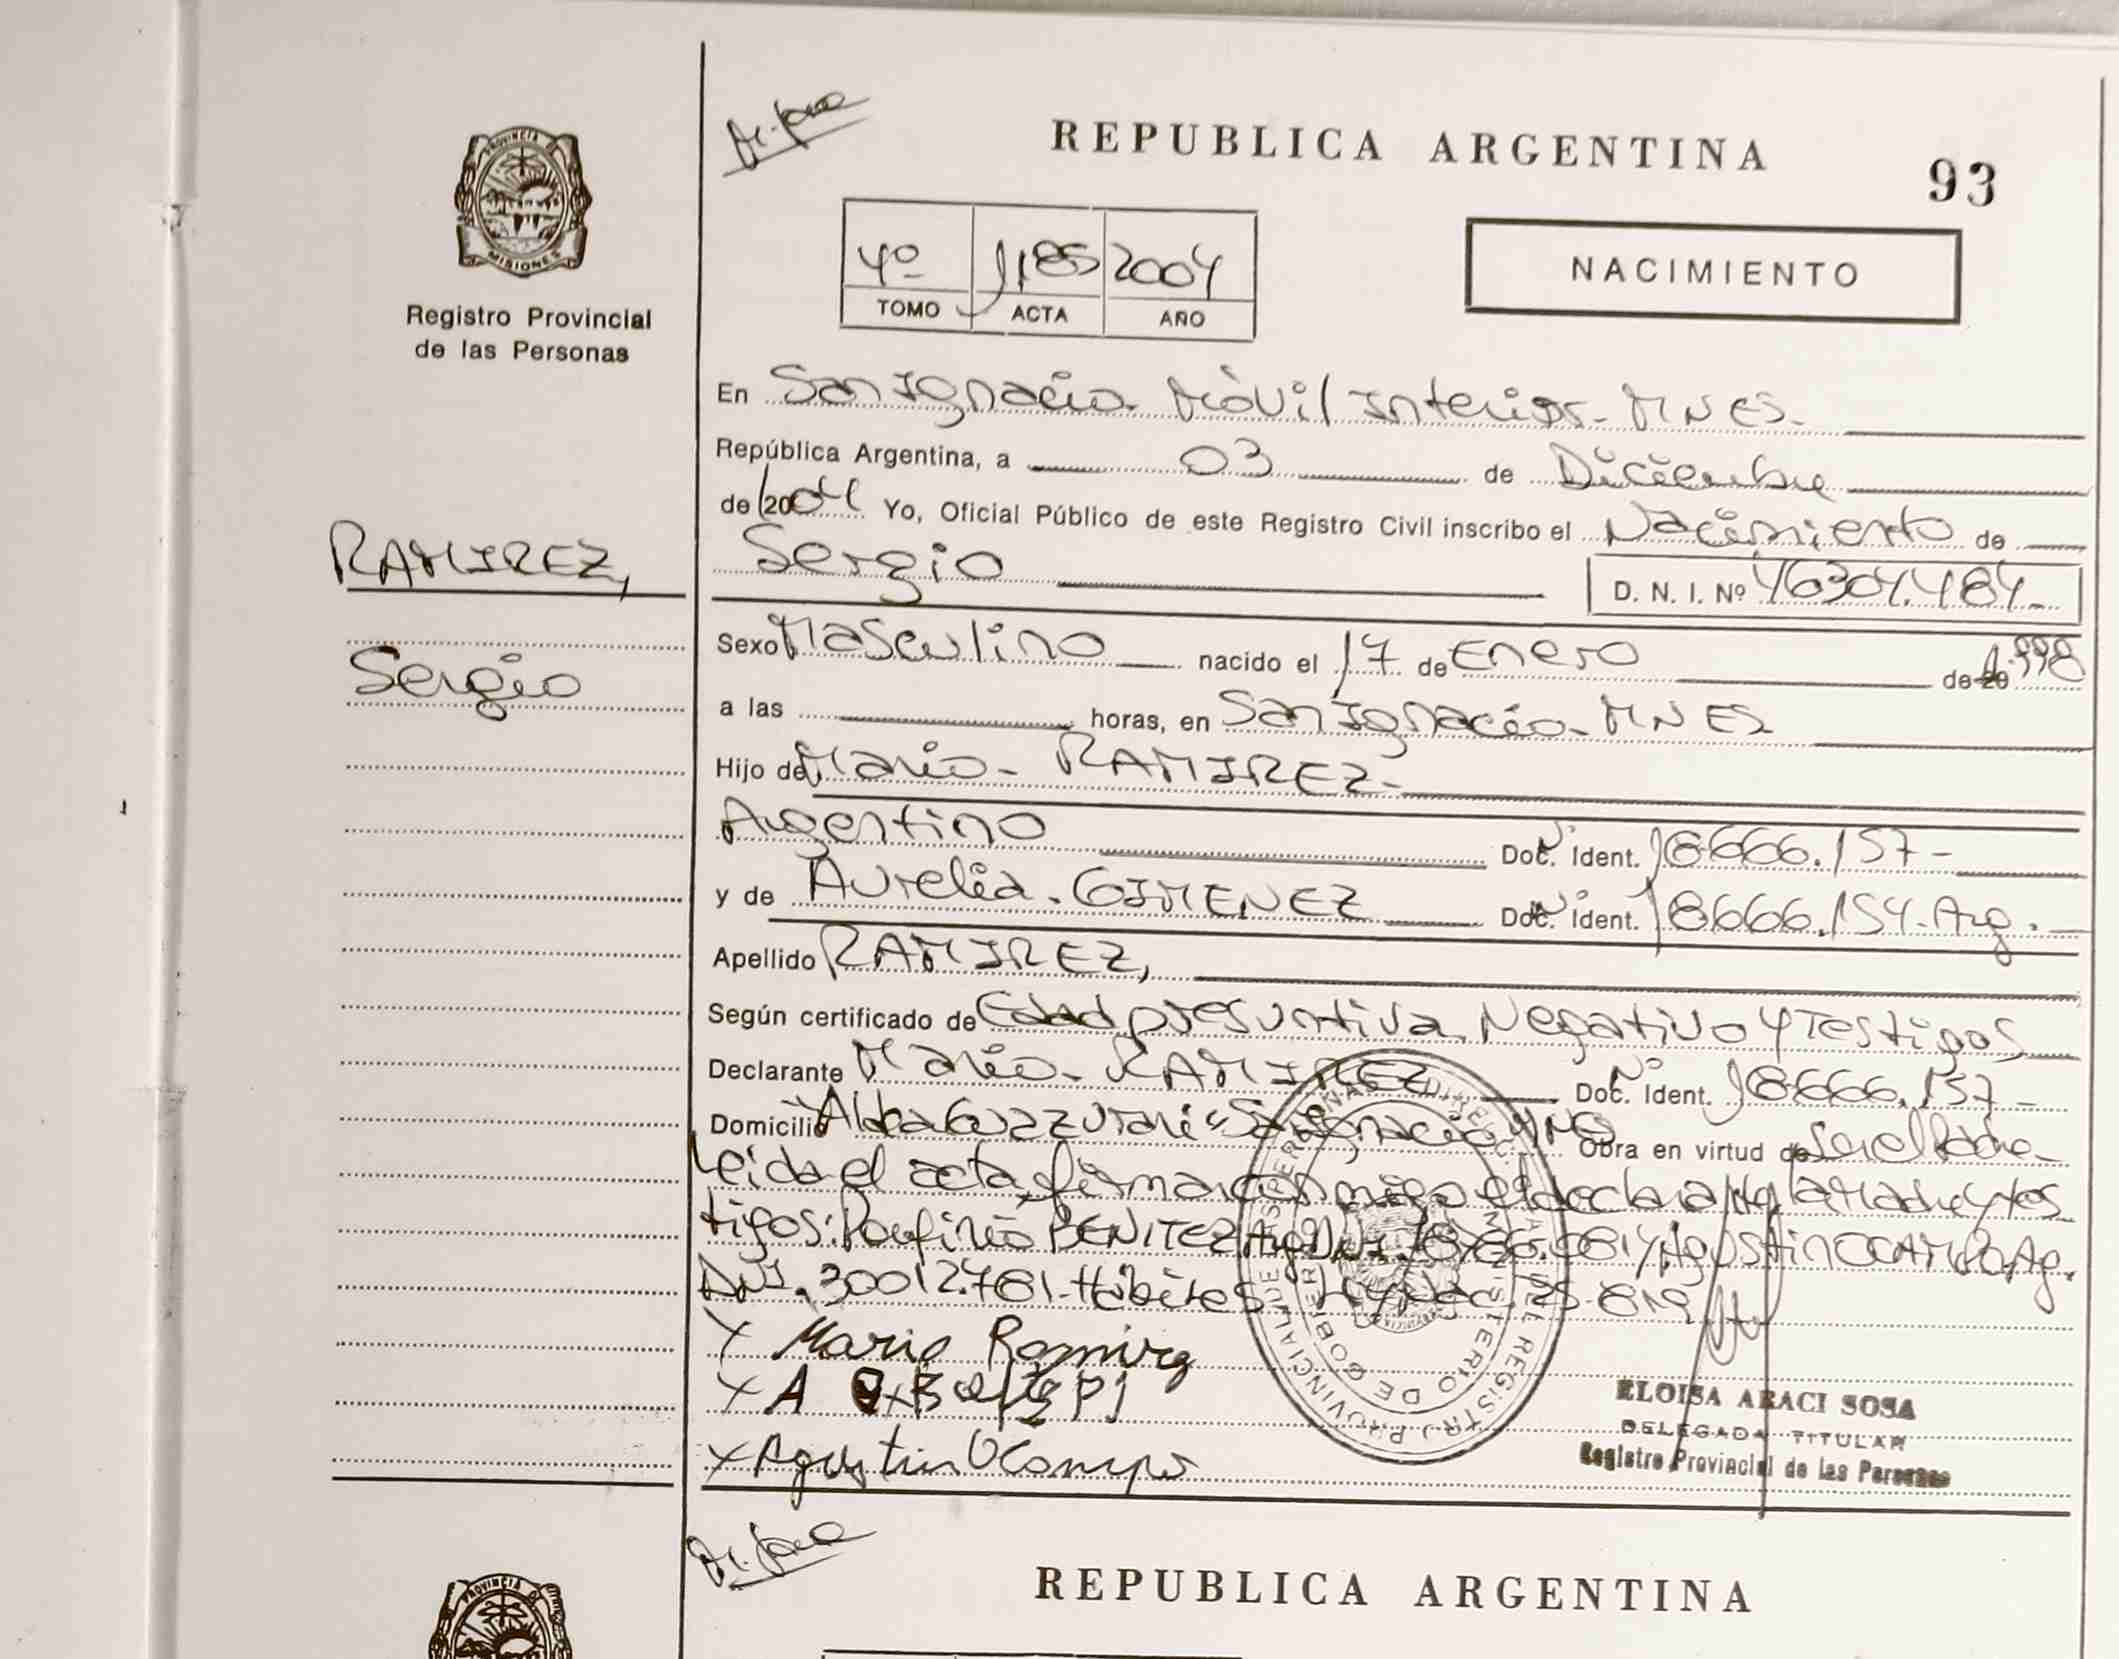 PROVINCIA D
MISIONES
Registro Provincial
de las Personas
REPUBLICA ARGENTINA
93
4º 1185 2004
TOMO ACTA AÑO
NACIMIENTO
En San Ignacio- Móvil Interior- MNES-
República Argentina, a 03 de Diciembre
de 2004 Yo, Oficial Público de este Registro Civil inscribo el Nacimiento de
RAMIREZ,
Sergio
Sergio D. N. I. Nº 46304.484-
Sexo Masculino nacido el 17 de Enero de 1.998
a las horas, en San Ignacio- MNES
Hijo de Mario- RAMIREZ-
Argentino Doc. Ident. 18.666.157-
y de Aurelia. GIMENEZ Doc. Ident. 18.666.154-Arg.
Apellido RAMIREZ,
Según certificado de Edad presuntiva Negativo y Testigos
Declarante Mario- RAMIREZ Doc. Ident. 18.666.157-
Domicilio Aldea San Ignacio Obra en virtud de Ser el Padre-
Leida el acta, firman conmigo el declarante, la madre y tes
tigos: Porfirio BENITEZ Agustin OCAMPO, Arg.
DNI. 30012.781-Hábiles-
x Mario Ramirez
x A
x Agustin Ocampo
ELOISA ARACI SOSA
DELEGADA TITULAR
Registro Provincial de las Personas
REPUBLICA ARGENTINA
PROVINCIA D